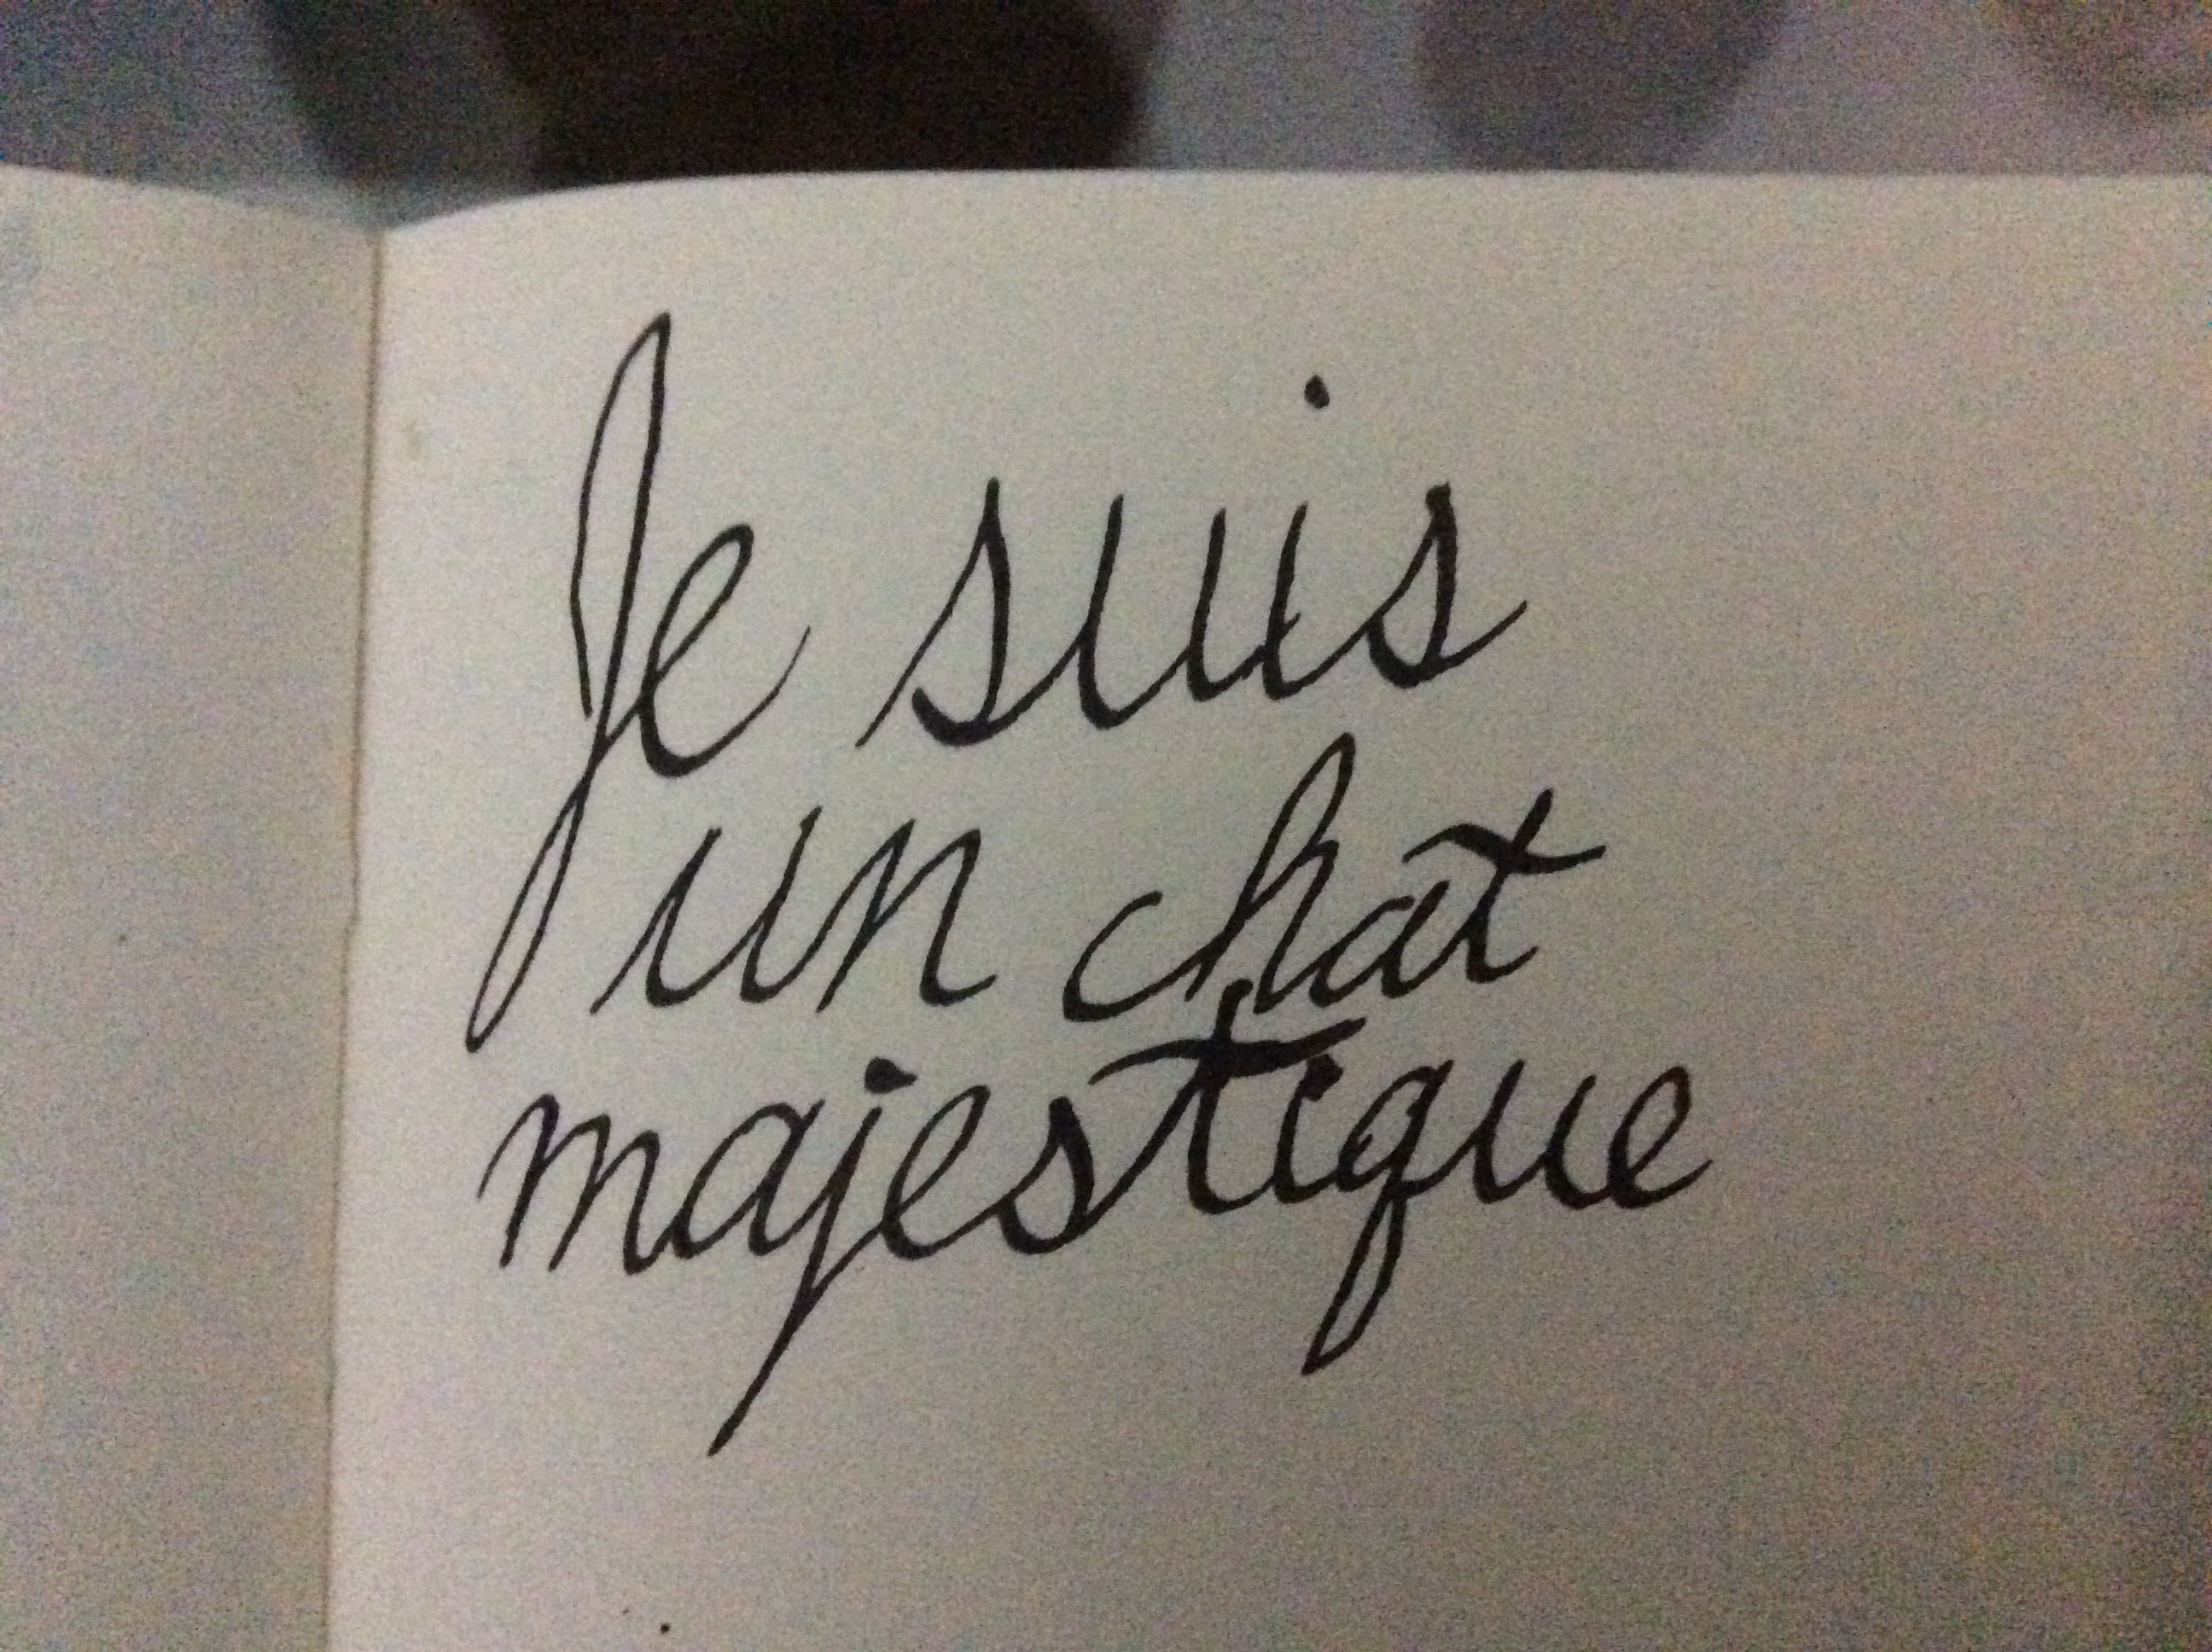 Je suis
un chat
majestique